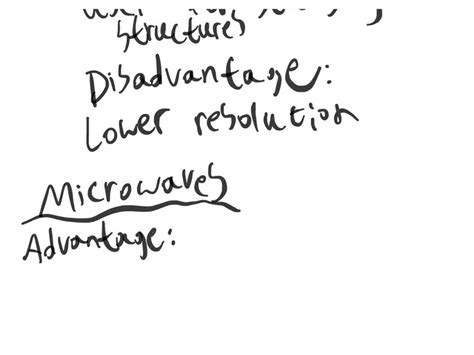 structures
Disadvantage:
Lower resolution
Microwaves
Advantage: